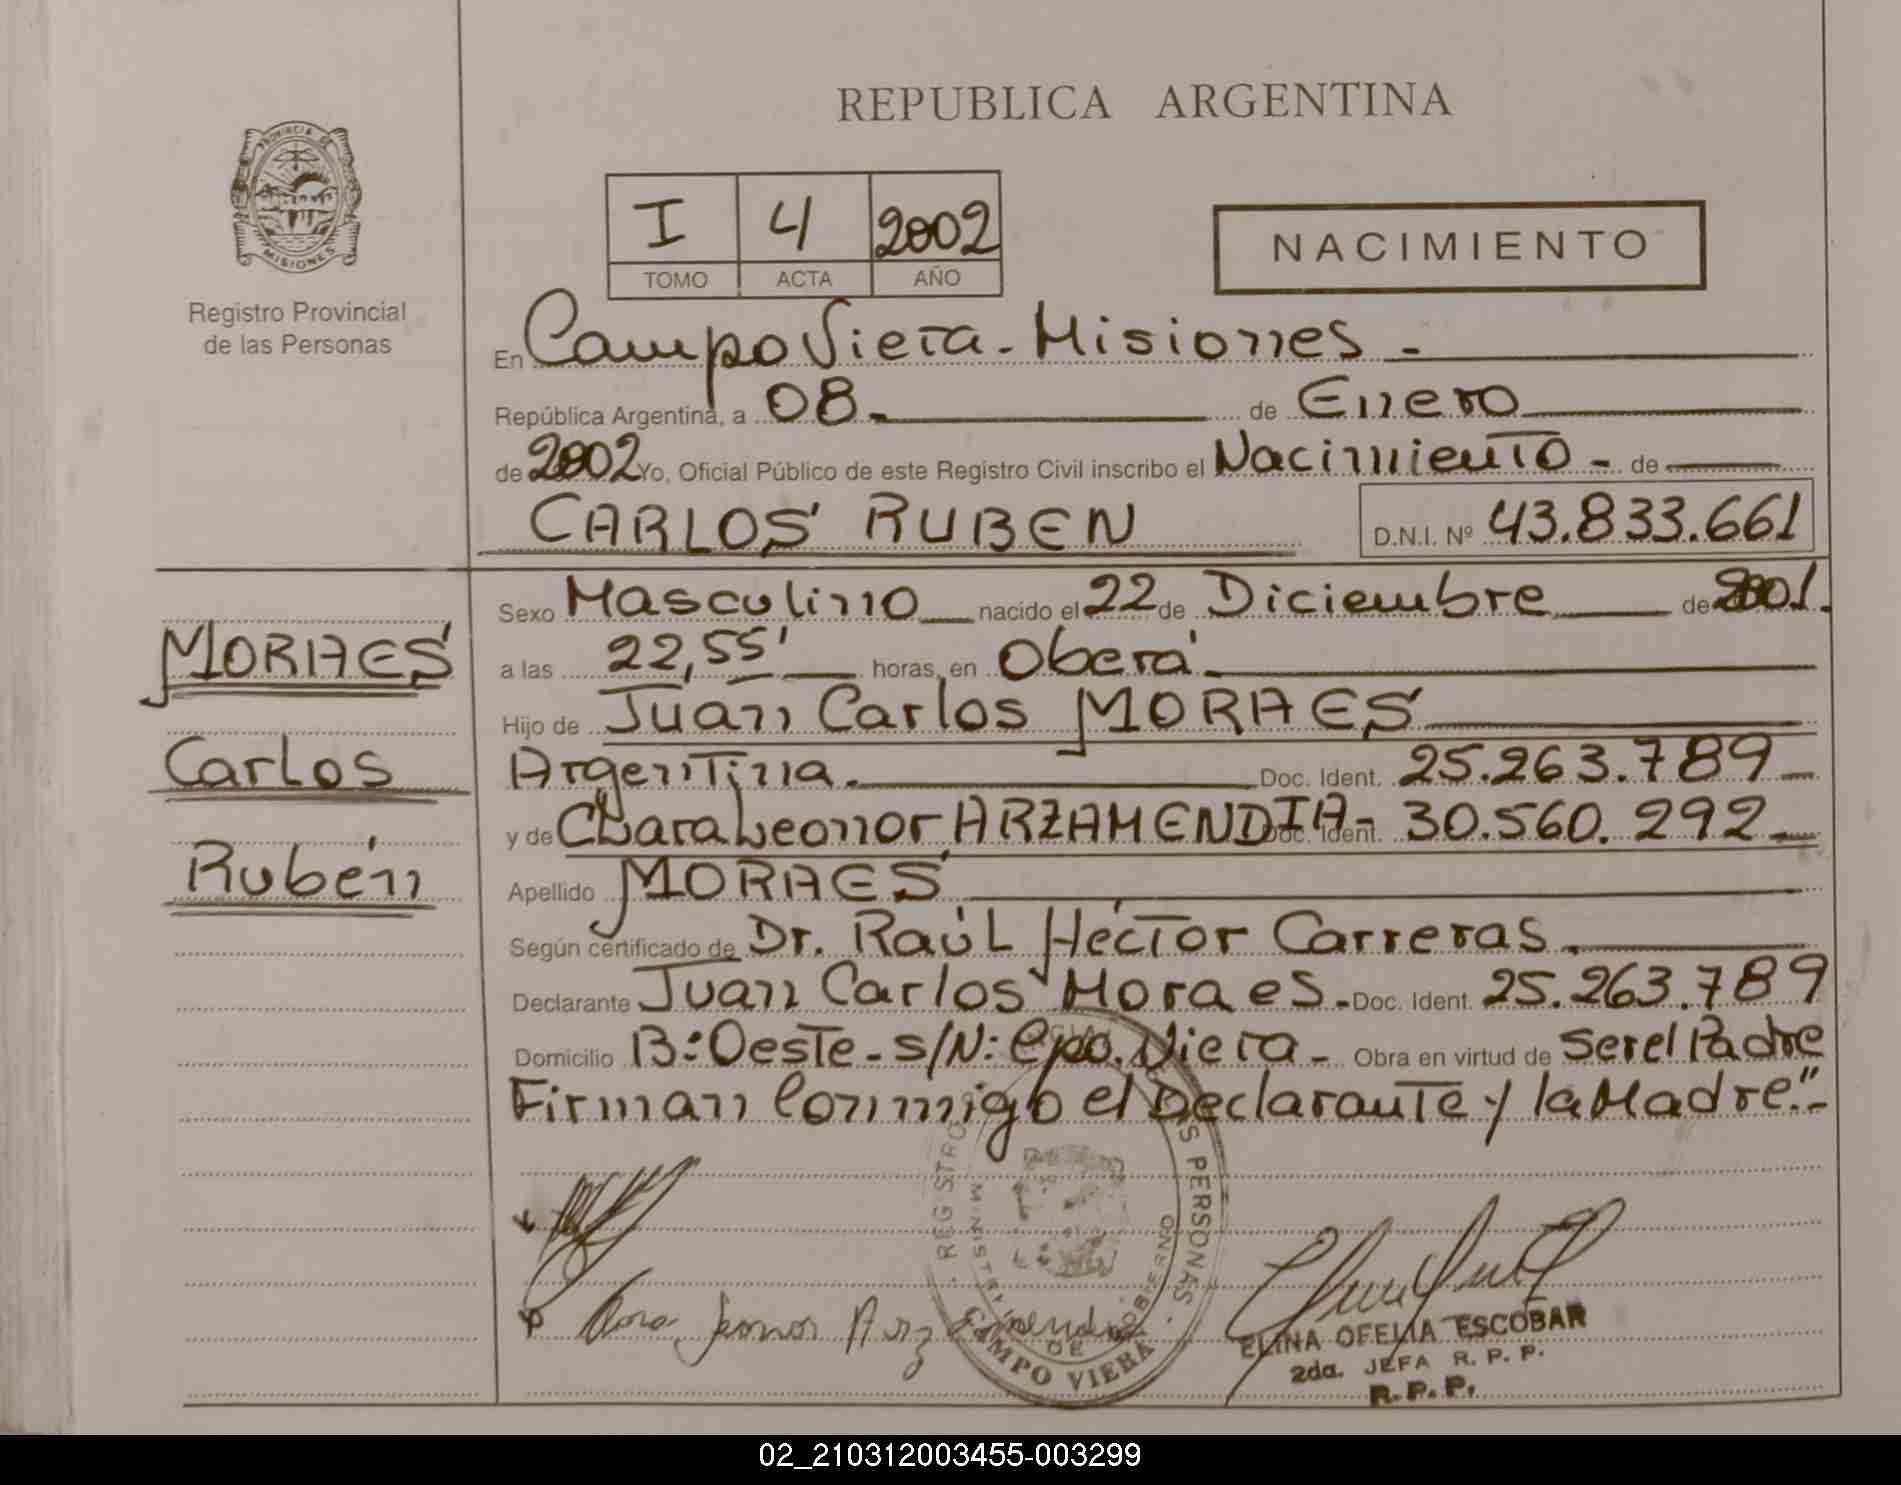 REPUBLICA ARGENTINA
PROVINCIA DE
MISIONES
Registro Provincial
de las Personas
I 4 2002
TOMO ACTA AÑO
NACIMIENTO
En Campo Viera - Misiones -
República Argentina, a 08 - de Enero
de 2002 Yo, Oficial Público de este Registro Civil inscribo el Nacimiento - de
CARLOS RUBEN D.N.I. Nº 43.833.661
MORAES
Carlos
Rubén
Sexo Masculino nacido el 22 de Diciembre de 2001.
a las 22,55' horas, en Oberá
Hijo de Juan Carlos MORAES
Argentina. Doc. Ident. 25.263.789
y de Clara Leonor ARZAMENDIA - Doc. Ident. 30.560.292
Apellido MORAES
Según certificado de Dr. Raúl Héctor Carreras.
Declarante Juan Carlos Moraes - Doc. Ident. 25.263.789
Domicilio B: Oeste - s/N: Cpo. Viera - Obra en virtud de ser el Padre
Firman Conmigo el Declarante y la Madre."-
REGISTRO PERSONAS
CAMPO VIERA
ELINA OFELIA ESCOBAR
2da. JEFA R. P. P.
R. P. P.
02_210312003455-003299